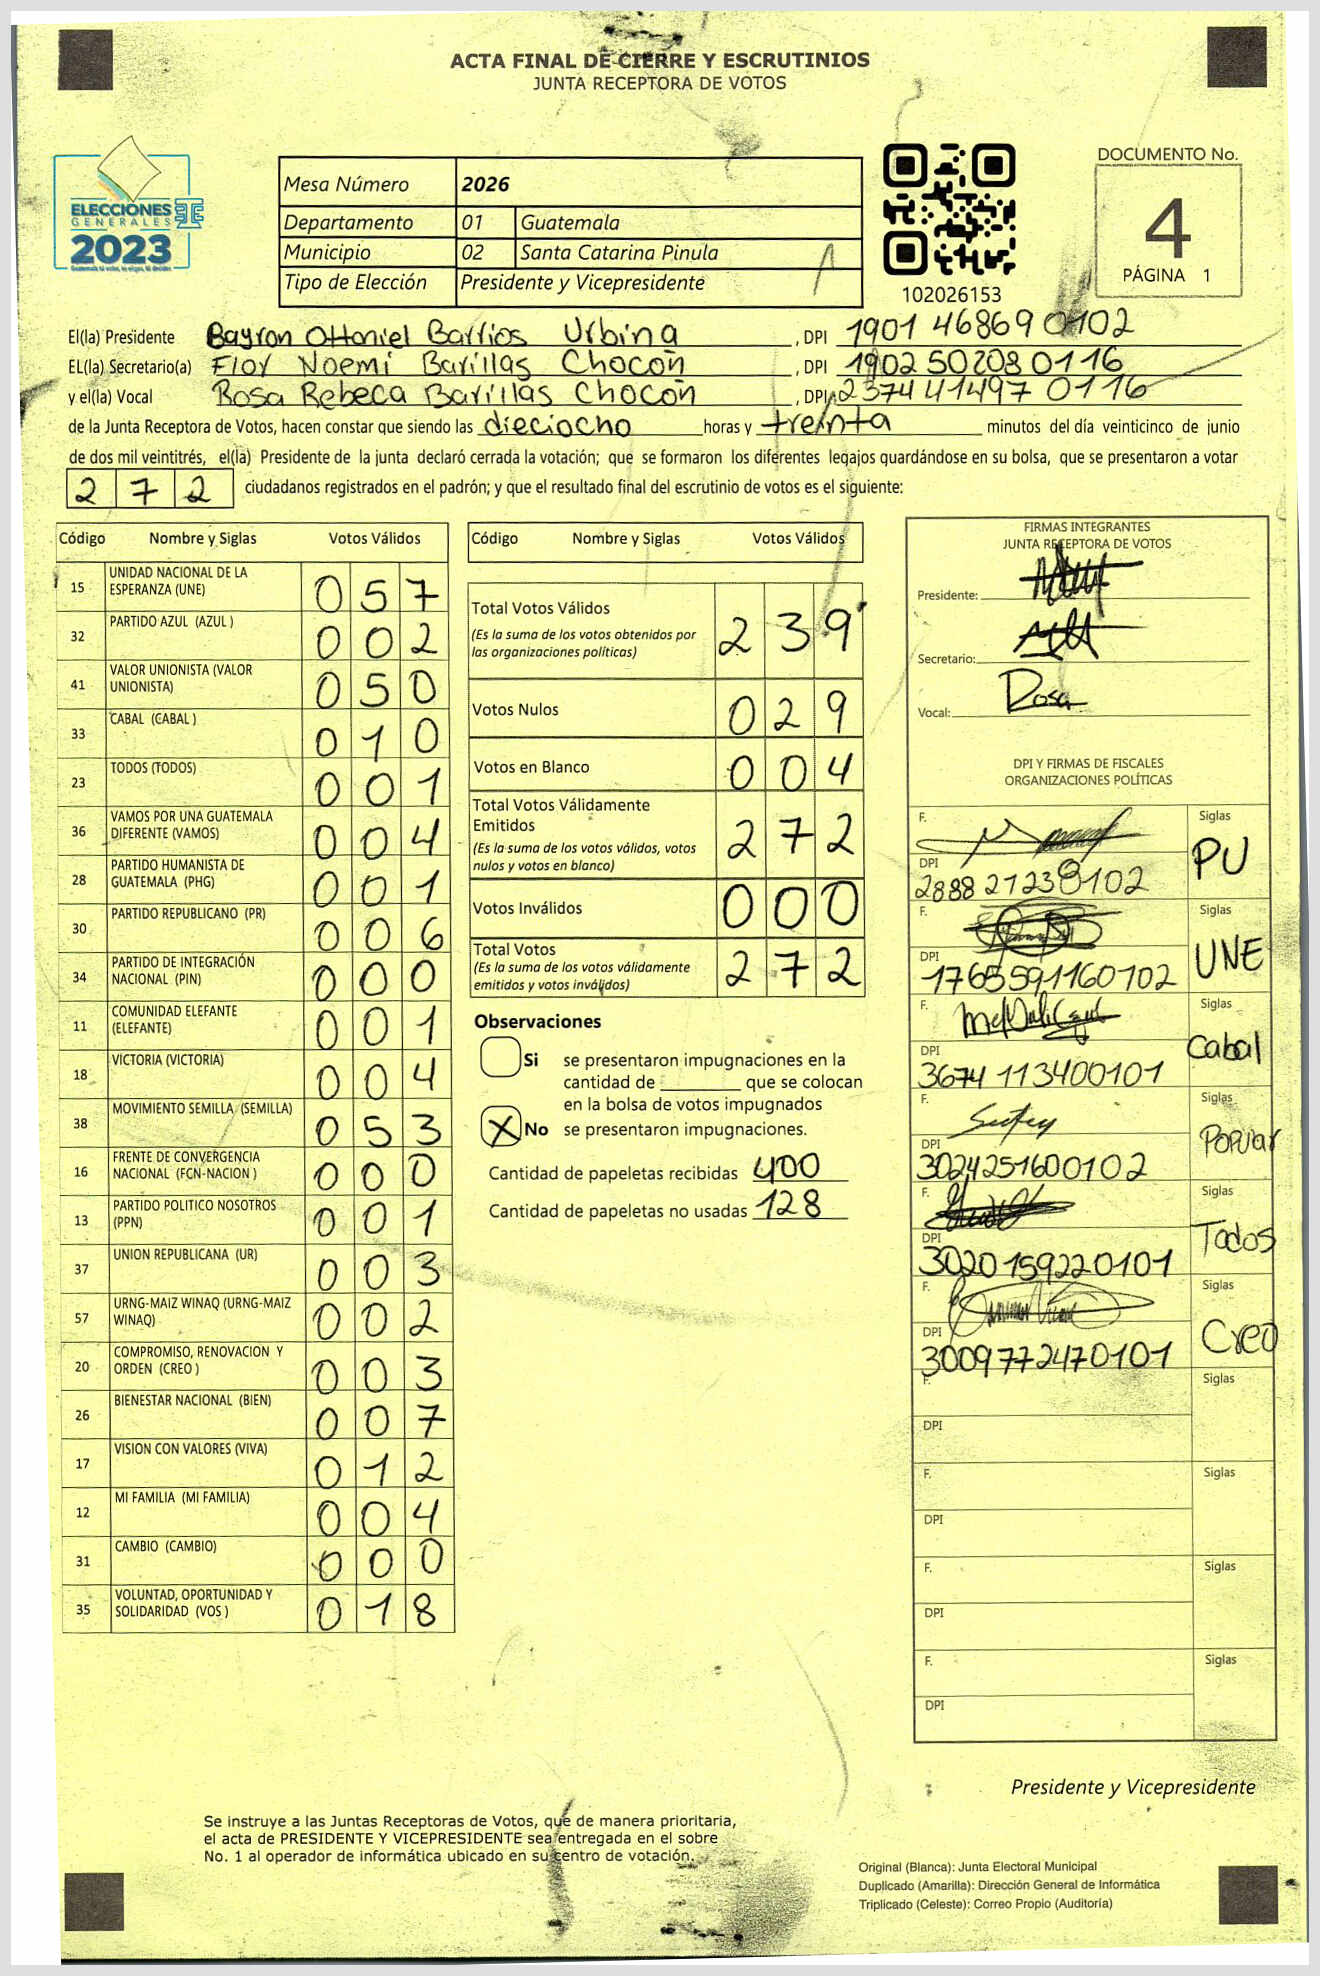 ACTA FINAL DE CIERRE Y ESCRUTINIOS
JUNTA RECEPTORA DE VOTOS
ELECCIONES
GENERALES
2023
Mesa Número 2026
Departamento 01 Guatemala
Municipio 02 Santa Catarina Pinula
Tipo de Elección Presidente y Vicepresidente
102026153
DOCUMENTO No.
4
PÁGINA 1
El(la) Presidente Bayron Ottoniel Barrios Urbina, DPI 1901 46869 0102
EL(la) Secretario(a) Flor Noemí Barillas Chocón, DPI 1902 50208 0116
y el(la) Vocal Rosa Rebeca Barillas Chocón, DPI 2374 41497 0116
de la Junta Receptora de Votos, hacen constar que siendo las dieciocho horas y treinta minutos del día veinticinco de junio
de dos mil veintitrés, el(la) Presidente de la junta declaró cerrada la votación; que se formaron los diferentes legajos guardándose en su bolsa, que se presentaron a votar
272 ciudadanos registrados en el padrón; y que el resultado final del escrutinio de votos es el siguiente:
Código Nombre y Siglas Votos Válidos
15 UNIDAD NACIONAL DE LA ESPERANZA (UNE) 057
32 PARTIDO AZUL (AZUL ) 002
41 VALOR UNIONISTA (VALOR UNIONISTA) 050
33 CABAL (CABAL ) 010
23 TODOS (TODOS) 001
36 VAMOS POR UNA GUATEMALA DIFERENTE (VAMOS) 004
28 PARTIDO HUMANISTA DE GUATEMALA (PHG) 001
30 PARTIDO REPUBLICANO (PR) 006
34 PARTIDO DE INTEGRACIÓN NACIONAL (PIN) 000
11 COMUNIDAD ELEFANTE (ELEFANTE) 001
18 VICTORIA (VICTORIA) 004
38 MOVIMIENTO SEMILLA (SEMILLA) 053
16 FRENTE DE CONVERGENCIA NACIONAL (FCN-NACION ) 000
13 PARTIDO POLITICO NOSOTROS (PPN) 001
37 UNION REPUBLICANA (UR) 003
57 URNG-MAIZ WINAQ (URNG-MAIZ WINAQ) 002
20 COMPROMISO, RENOVACION Y ORDEN (CREO ) 003
26 BIENESTAR NACIONAL (BIEN) 007
17 VISION CON VALORES (VIVA) 012
12 MI FAMILIA (MI FAMILIA) 004
31 CAMBIO (CAMBIO) 000
35 VOLUNTAD, OPORTUNIDAD Y SOLIDARIDAD (VOS ) 018
Código Nombre y Siglas Votos Válidos
Total Votos Válidos 239
(Es la suma de los votos obtenidos por
las organizaciones politicas)
Votos Nulos 029
Votos en Blanco 004
Total Votos Válidamente
Emitidos 272
(Es la suma de los votos válidos, votos
nulos y votos en blanco)
Votos Inválidos 000
Total Votos 272
(Es la suma de los votos válidamente
emitidos y votos inválidos)
Observaciones
Si se presentaron impugnaciones en la
cantidad de ________ que se colocan
en la bolsa de votos impugnados
X No se presentaron impugnaciones.
Cantidad de papeletas recibidas 400
Cantidad de papeletas no usadas 128
FIRMAS INTEGRANTES
JUNTA RECEPTORA DE VOTOS
Presidente:
Secretario:
Vocal: Rosa
DPI Y FIRMAS DE FISCALES
ORGANIZACIONES POLÍTICAS
F. Siglas PU
DPI 2888 21238 0102
F. Siglas UNE
DPI 1765591160102
F. Siglas Cabal
DPI 3674 113400101
F. Siglas Popular
DPI 3024251600102
F. Siglas Todos
DPI 3020159220101
F. Siglas Creo
DPI 3009772470101
F. Siglas
DPI
F. Siglas
DPI
F. Siglas
DPI
F. Siglas
DPI
Presidente y Vicepresidente
Se instruye a las Juntas Receptoras de Votos, que de manera prioritaria,
el acta de PRESIDENTE Y VICEPRESIDENTE sea entregada en el sobre
No. 1 al operador de informática ubicado en su centro de votación.
Original (Blanca): Junta Electoral Municipal
Duplicado (Amarilla): Dirección General de Informática
Triplicado (Celeste): Correo Propio (Auditoría)